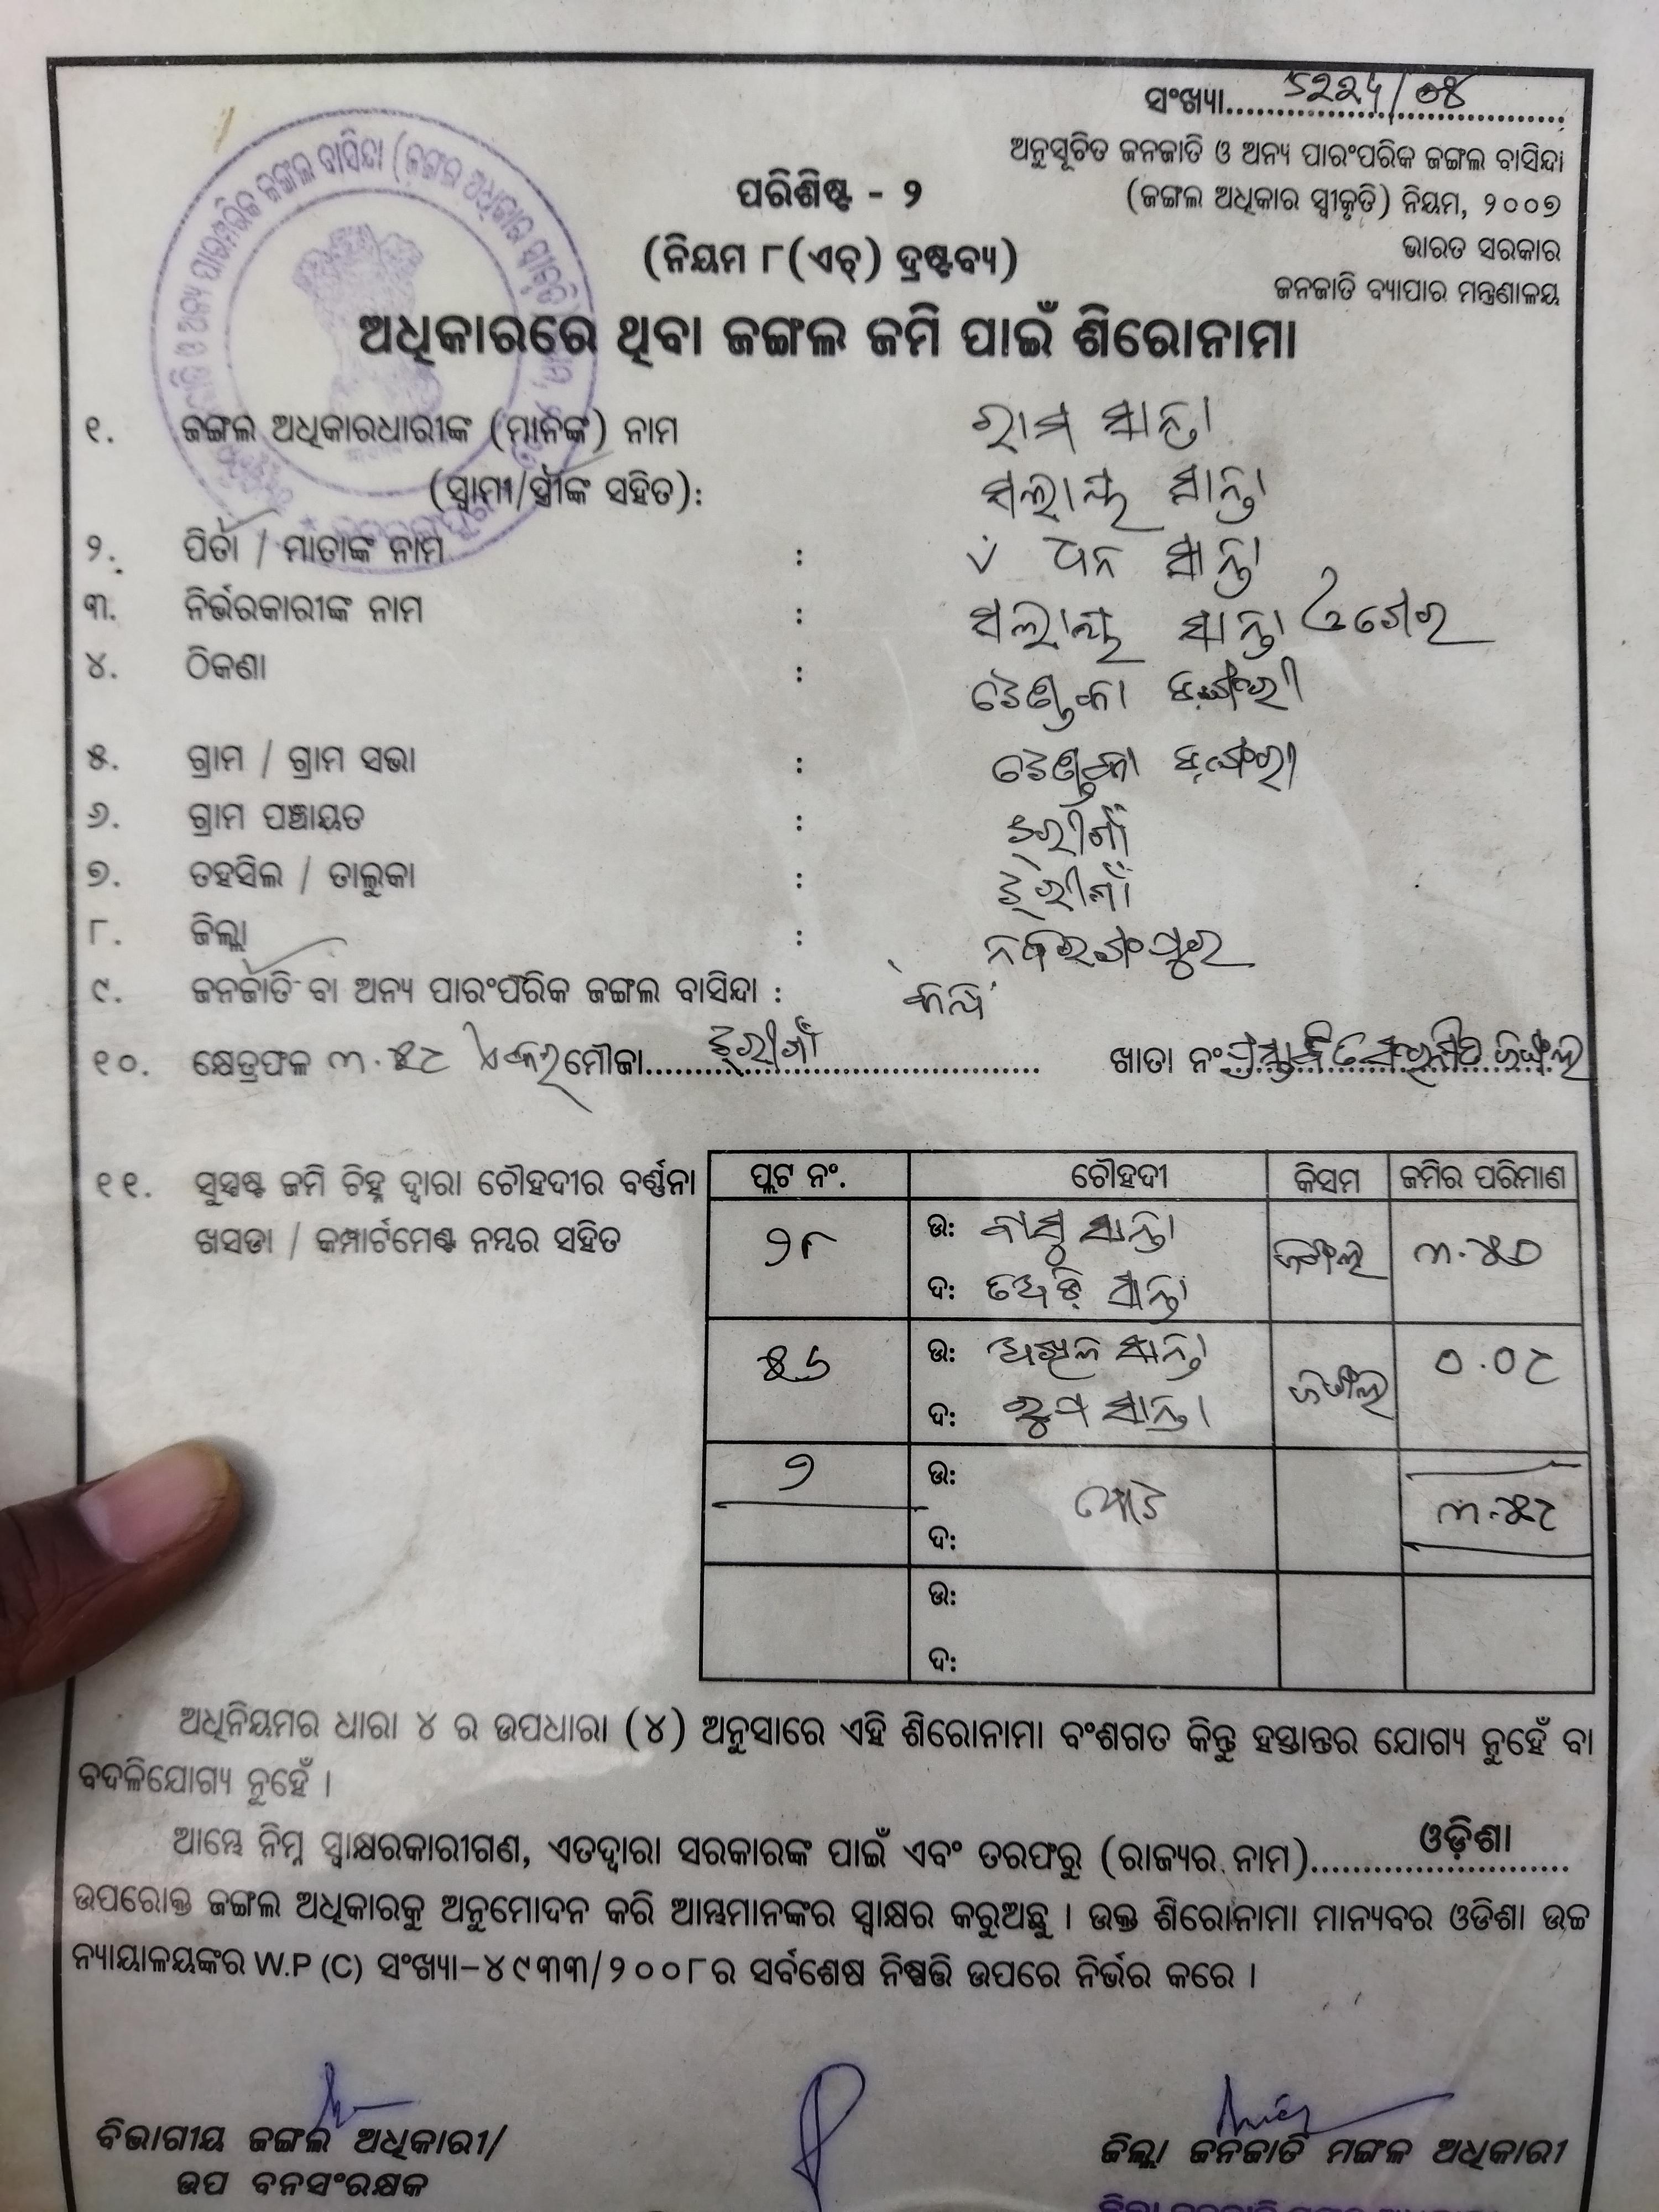 ସଂଖ୍ୟା
ଅନୁସୂଚିତ ଜନଜାତି ଓ ଅନ୍ୟ ପାରଂପରିକ ଜଙ୍ଗଲ ବାସିନ୍ଦା
(ଜଙ୍ଗଲ ଅଧିକାର ସ୍ୱୀକୃତି) ନିୟମ, ୨୦୦୭
ଭାରତ ସରକାର
ଜନଜାତି ବ୍ୟାପାର ମନ୍ତ୍ରଣାଳୟ
ପରିଶିଷ୍ଟ - ୨
(ନିୟମ ୮(ଏଚ୍) ଦ୍ରଷ୍ଟବ୍ୟ)
ଅଧିକାରରେ ଥିବା ଜଙ୍ଗଲ ଜମି ପାଇଁ ଶିରୋନାମା
୧. ଜଙ୍ଗଲ ଅଧିକାରଧାରୀଙ୍କ (ମାନଙ୍କ) ନାମ ରାମ ସାନ୍ତା
(ସ୍ୱାମୀ/ସ୍ତ୍ରୀଙ୍କ ସହିତ): ସାନ୍ତା
୨. ପିତା / ମାତାଙ୍କ ନାମ : ଧନ ସାନ୍ତା
୩. ନିର୍ଭରକାରୀଙ୍କ ନାମ : ସାନ୍ତା
୪. ଠିକଣା :
୫. ଗ୍ରାମ / ଗ୍ରାମ ସଭା :
୬. ଗ୍ରାମ ପଞ୍ଚାୟତ : ଝରୀଗାଁ
୭. ତହସିଲ / ତାଲୁକା : ଝରୀଗାଁ
୮. ଜିଲ୍ଲା : ନବରଙ୍ଗପୁର
୯. ଜନଜାତି ବା ଅନ୍ୟ ପାରଂପରିକ ଜଙ୍ଗଲ ବାସିନ୍ଦା :
୧୦. କ୍ଷେତ୍ରଫଳ ୩.୫୮ ଏକର ମୌଜା ଝରୀଗାଁ ଖାତା ନଂ
୧୧. ସୁସ୍ପଷ୍ଟ ଜମି ଚିହ୍ନ ଦ୍ୱାରା ଚୌହଦୀର ବର୍ଣ୍ଣନା
ଖସଡା / କମ୍ପାର୍ଟମେଣ୍ଟ ନମ୍ବର ସହିତ
ପ୍ଲଟ ନଂ. ଚୌହଦୀ କିସମ ଜମିର ପରିମାଣ
୨୮ ଉ: ବାସୁ ସାନ୍ତା ଜଙ୍ଗଲ ୩.୫୦
ଦ: ସାନ୍ତା
୫୬ ଉ: ସାନ୍ତା ଜଙ୍ଗଲ ୦.୦୮
ଦ: ସାନ୍ତା
୨ ଉ: ମୋଟ ୩.୫୮
ଦ:
ଉ:
ଦ:
ଅଧିନିୟମର ଧାରା ୪ ର ଉପଧାରା (୪) ଅନୁସାରେ ଏହି ଶିରୋନାମା ବଂଶଗତ କିନ୍ତୁ ହସ୍ତାନ୍ତର ଯୋଗ୍ୟ ନୁହେଁ ବା
ବଦଳିଯୋଗ୍ୟ ନୁହେଁ ।
ଆମ୍ଭେ ନିମ୍ନ ସ୍ୱାକ୍ଷରକାରୀଗଣ, ଏତଦ୍ଦ୍ୱାରା ସରକାରଙ୍କ ପାଇଁ ଏବଂ ତରଫରୁ (ରାଜ୍ୟର ନାମ) ଓଡ଼ିଶା
ଉପରୋକ୍ତ ଜଙ୍ଗଲ ଅଧିକାରକୁ ଅନୁମୋଦନ କରି ଆମ୍ଭମାନଙ୍କର ସ୍ୱାକ୍ଷର କରୁଅଛୁ । ଉକ୍ତ ଶିରୋନାମା ମାନ୍ୟବର ଓଡିଶା ଉଚ୍ଚ
ନ୍ୟାୟାଳୟଙ୍କର W.P (C) ସଂଖ୍ୟା-୪୯୩୩/୨୦୦୮ର ସର୍ବଶେଷ ନିଷ୍ପତ୍ତି ଉପରେ ନିର୍ଭର କରେ ।
ବିଭାଗୀୟ ଜଙ୍ଗଲ ଅଧିକାରୀ/ ଜିଲ୍ଲା ଜନଜାତି ମଙ୍ଗଳ ଅଧିକାରୀ
ଉପ ବନସଂରକ୍ଷକ